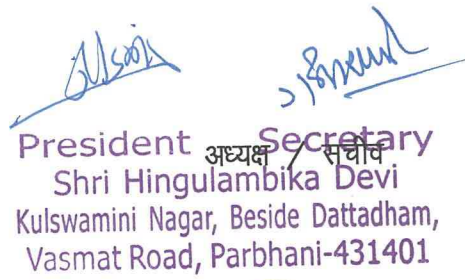 President Secretary
अध्यक्ष / सचीव
Shri Hingulambika Devi
Kulswamini Nagar, Beside Dattadham,
Vasmat Road, Parbhani-431401